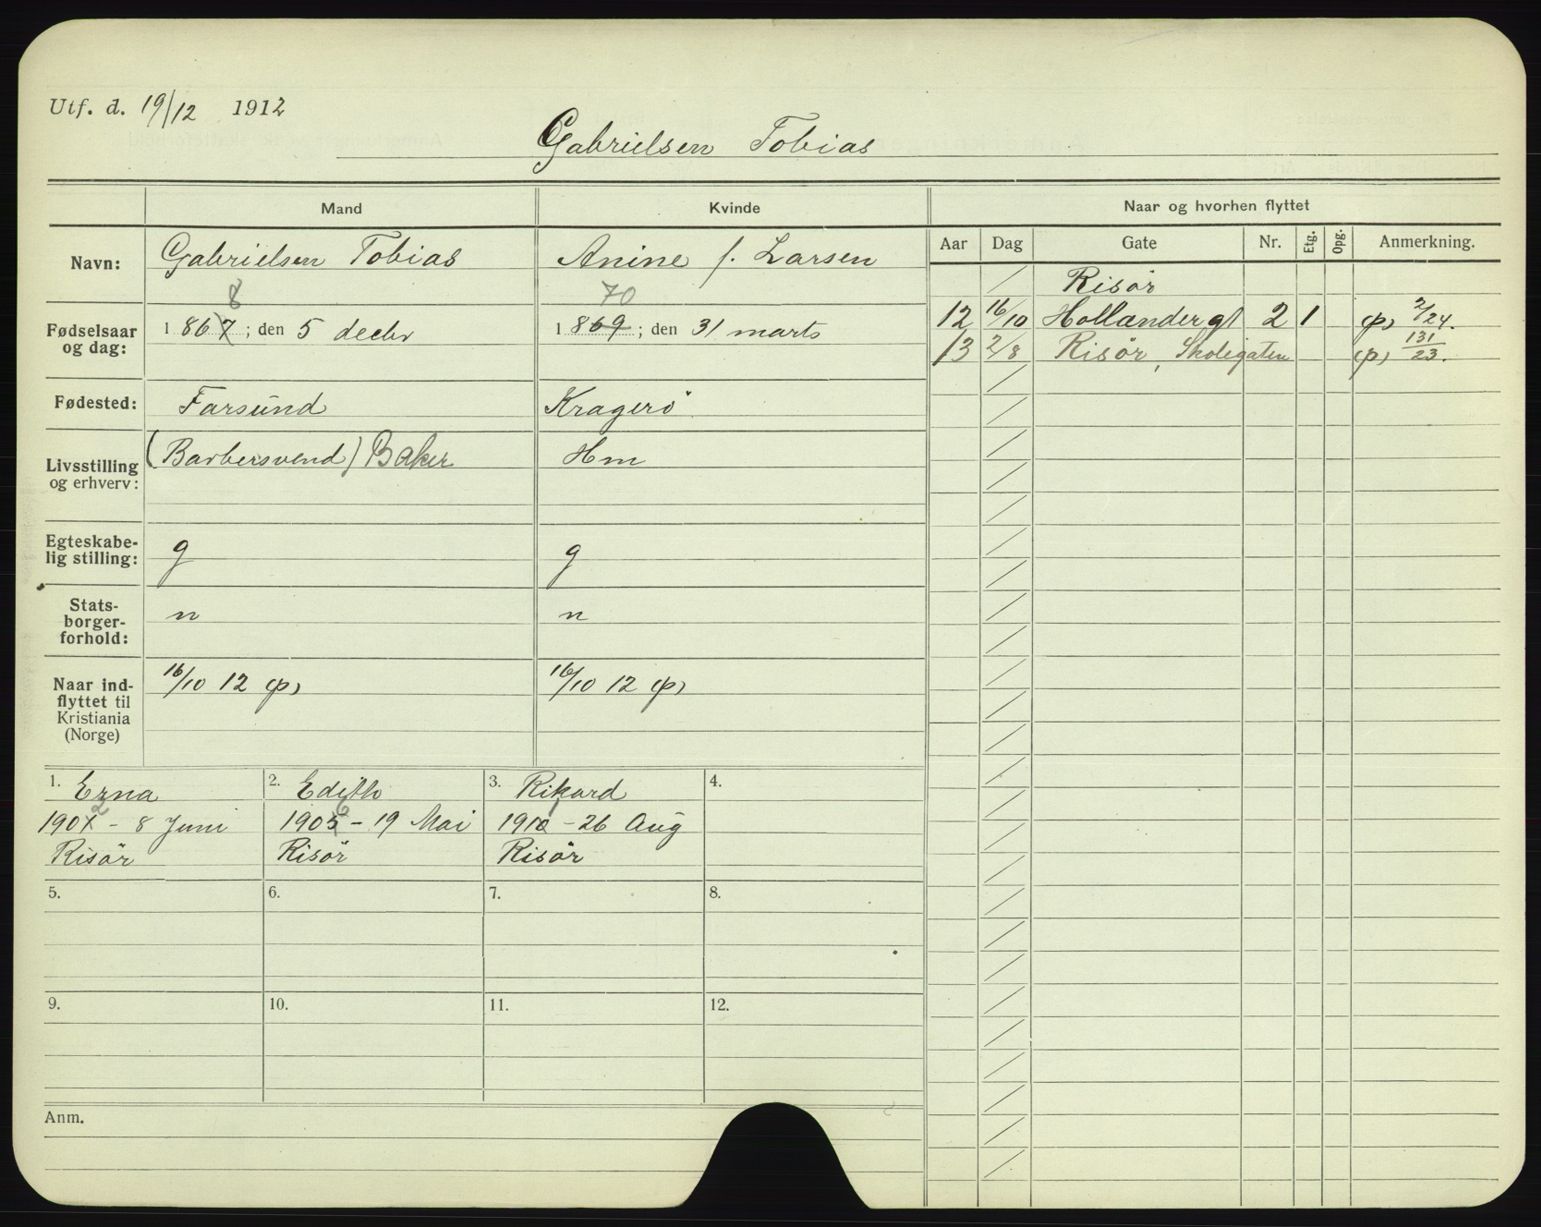 Utf. d. 19/12 1912
Gabrielsen Tobias
Mand
Kvinde
Naar og hvorhen flyttet
Aar
Dag
Gate
Nr.
Etg.
Opg.
Anmerkning.
Navn:
Gabrielsen Tobias
Anine f. Larsen
Fødselsaar og dag:
8
1 867; den 5 decbr
70
1 869; den 31 marts
Fødested:
Farsund
Kragerö
Livsstilling og erhverv:
(Barbersvend) Baker
Hm
Egteskabelig stilling:
g
g
Statsborgerforhold:
n
n
Naar indflyttet til Kristiania (Norge)
16/10 12 (p)
16/10 12 (p)
Risör
12 16/10 Hollendergt 2 1 (p) 2/24.
13 2/8 Risör, Skolegaten (p) 131/23.
1. Erna
2
1901 - 8 Juni
Risör
2. Edith
6
1905 - 19 Mai
Risör
3. Rikard
1
1910 - 26 Aug
Risör
4.
5.
6.
7.
8.
9.
10.
11.
12.
Anm.